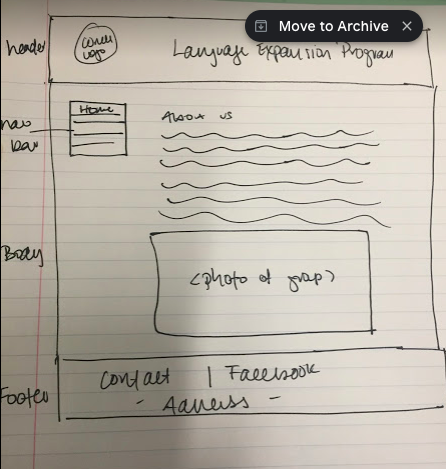 Move to Archive
header
logo
Language Expansion Program
nav
bar
Home
About us
Body
(photo of group)
Footer
Contact | Facebook
- Address -